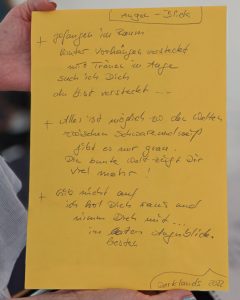 Augen-Blick
+ gefangen im Raum
hinter Vorhängen versteckt
mit Tränen im Auge
such ich Dich
du bist versteckt...
+ Alles ist möglich in den Welten
zwischen Schwarz und weiß
gibt es nur grau.
Die bunte Welt zeigt Dir
viel mehr!
+ Gib nicht auf
ich hol Dich raus und
nimm Dich mit...
im Augenblick.
besten
Darklands 2022